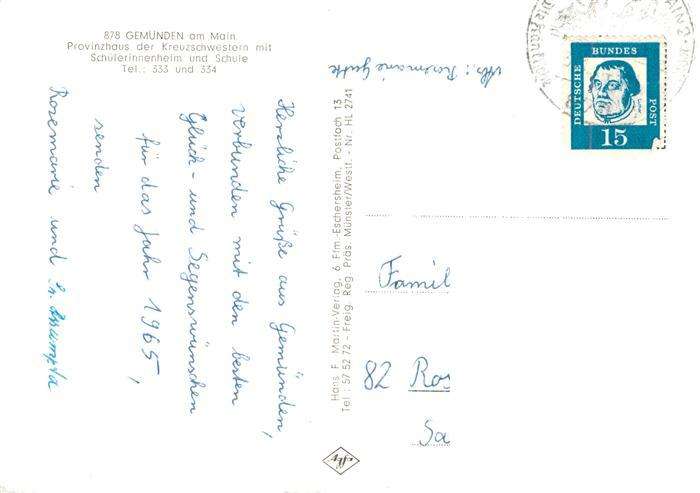 878 GEMÜNDEN am Main
Provinzhaus der Kreuzschwestern mit
Schülerinnenheim und Schule
Tel.: 333 und 334
Herzliche Grüße aus Gemünden,
verbunden mit den besten
Glück- und Segenswünschen
für das Jahr 1965,
senden
Rosemarie und
Hans F. Martin-Verlag, 6 Ffm.-Eschersheim, Postfach 13
Tel: 57 52 72 - Freig. Reg. Präs. Münster/Westf. - Nr. HL 2741
Abs.: Rosemarie
DEUTSCHE
BUNDES
POST
15
Famil
82 Ros
Sa